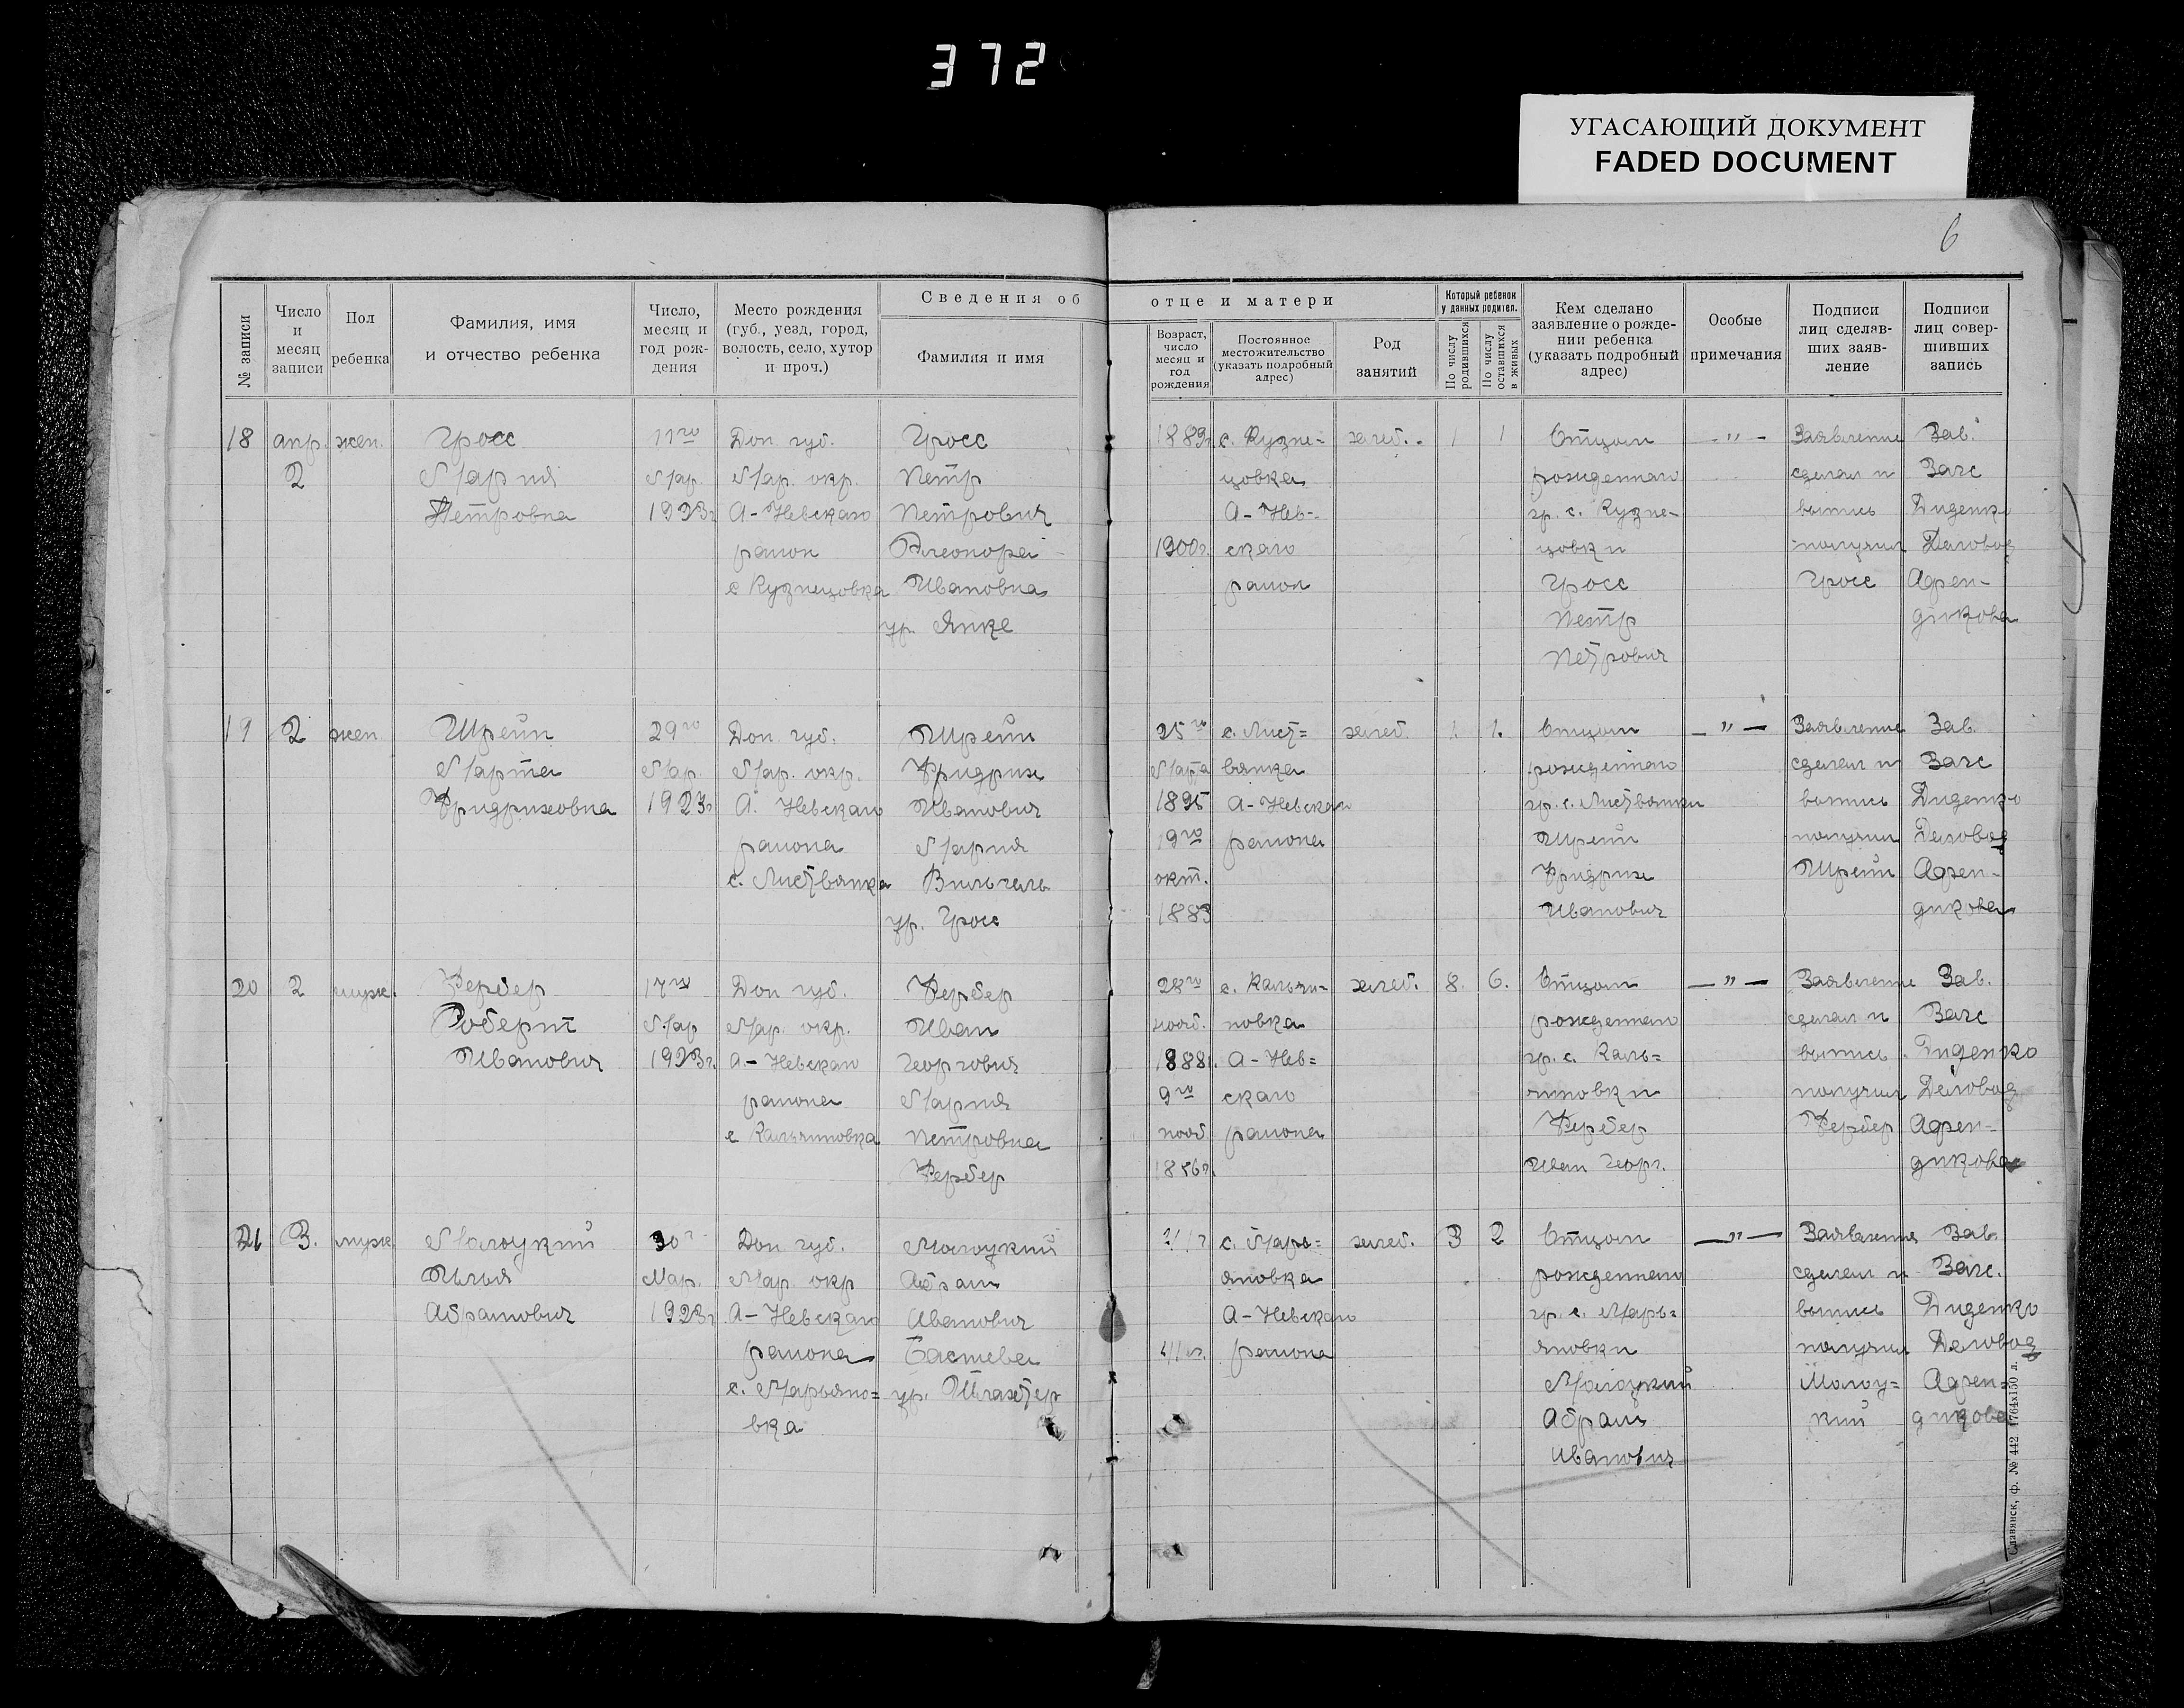 372
УГАСАЮЩИЙ ДОКУМЕНТ
FADED DOCUMENT
6
№ записи
Число и месяц записи
Пол ребенка
Фамилия, имя и отчество ребенка
Число, месяц и год рождения
Место рождения (губ., уезд, город, волость, село, хутор и проч.)
Сведения об отце и матери
Фамилия и имя
Возраст, число месяц и год рождения
Постоянное местожительство (указать подробный адрес)
Род занятий
Который ребенок у данных родител.
По числу родившихся
По числу оставшихся в живых
Кем сделано заявление о рождении ребенка (указать подробный адрес)
Особые примечания
Подписи лиц сделавших заявление
Подписи лиц совершивших запись
18 апр. жен. Гросс 11го Дон губ. Гросс 1889г. с. Кузне- хлеб. 1 1 Отцом —"— Заявление Зав.
2 Мария Мар. Мар. окр. Петр цовка рожденнаго сделал и Загс
Петровна 1923г А-Невскаго Петрович А-Нев- гр. с. Кузне- выпись Диденко
район 1900г. скаго цовки получил Деловод
с Кузнецовка Ивановна район Гросс Гросс Адрен-
ур. Янке Петр дикова
Петрович
19 2 жен Шрейн 29го Дон губ. Шрейн 25го с. Лист= хлеб. 1. 1. Отцом —"— Заявление Зав.
Марта Мар. Мар. окр. Фридрих Марта вянка рожденнаго сделал и Загс
Фридриховна 1923г А. Невскаго Иванович 1895 А-Невскаго гр. с. Листвянки выпись Диденко
района Мария 19го района Шрейн получил Деловод
с. Листвянка окт. Фридрих Шрейн Адрен-
ур. Гросс 1883 Иванович дикова
20 2 муж. Фербер 17го Дон губ. Фербер 28го с. Кальчи- хлеб. 8. 6. Отцом —"— Заявление Зав.
Роберт Мар Мар. окр. Иван нояб. новка рожденнаго сделал и Загс
Иванович 1923г. А-Невскаго Георгович 1888г. А-Нев= гр. с. Каль= выпись Диденко
района Мария 9го скаго чиновки получил Деловод
с Кальчиновка Петровна нояб. района Фербер Фербер Адрен-
Фербер Иван Георг. дикова
21 3. муж. Малоукий 30г Дон губ. Малоукий с. Марь= хлеб. 3 2 Отцом —"— Заявление Зав.
Илья Мар. Мар. окр Абрам яновка рожденнаго сделал и Загс.
Абрамович 1923г А-Невскаго Иванович А-Невскаго гр. с. Марь= выпись Диденко
района района яновки получил Деловод
с. Марьяно= ур. Малоукий Малоу= Адрен=
вка Абрам кий дикова
Иванович
Славянск, ф. № 442 1764х150 л.